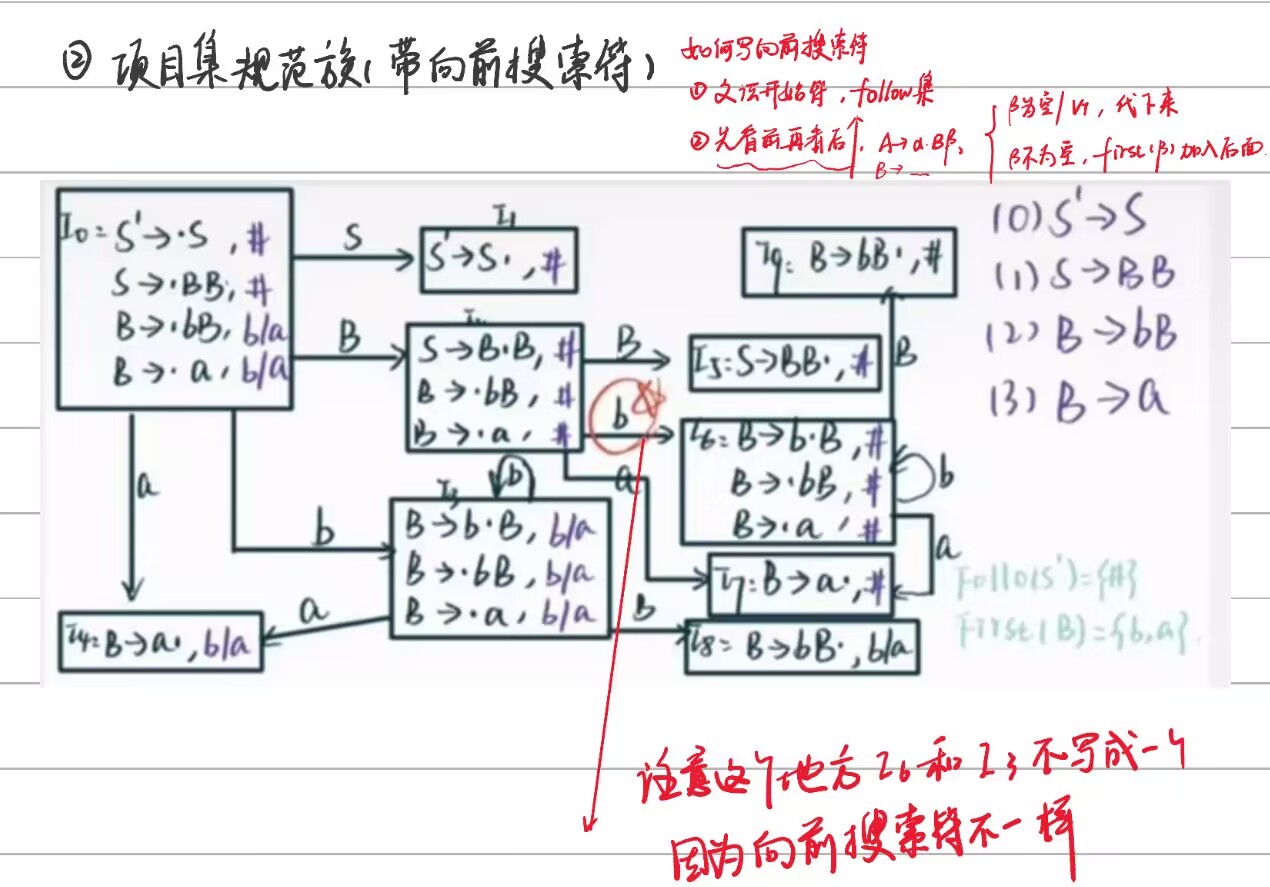 ② 项目集规范族(带向前搜索符)
如何写向前搜索符
① 文法开始符，follow集
② 先看前再看后，A→α·Bβ，
B→…
β为空/VT，代下来
β不为空，first(β)加入后面.
I0= S'→·S , #
S→·BB, #
B→·bB, b/a
B→·a, b/a
S
I1
S'→S· , #
B
S→B·B, #
B→·bB, #
B→·a, #
B
I5=S→BB·, #
b
I6=B→b·B, #
B→·bB, #
B→·a, #
b
B
I9: B→bB·, #
a
a
I7=B→a·, #
b
I3
B→b·B, b/a
B→·bB, b/a
B→·a, b/a
b
B
I8= B→bB·, b/a
a
a
I4=B→a·, b/a
(0) S'→S
(1) S→BB
(2) B→bB
(3) B→a
Follo(S')={#}
First(B)={b,a}.
注意这个地方 I6和I3不写成一个
因为向前搜索符不一样